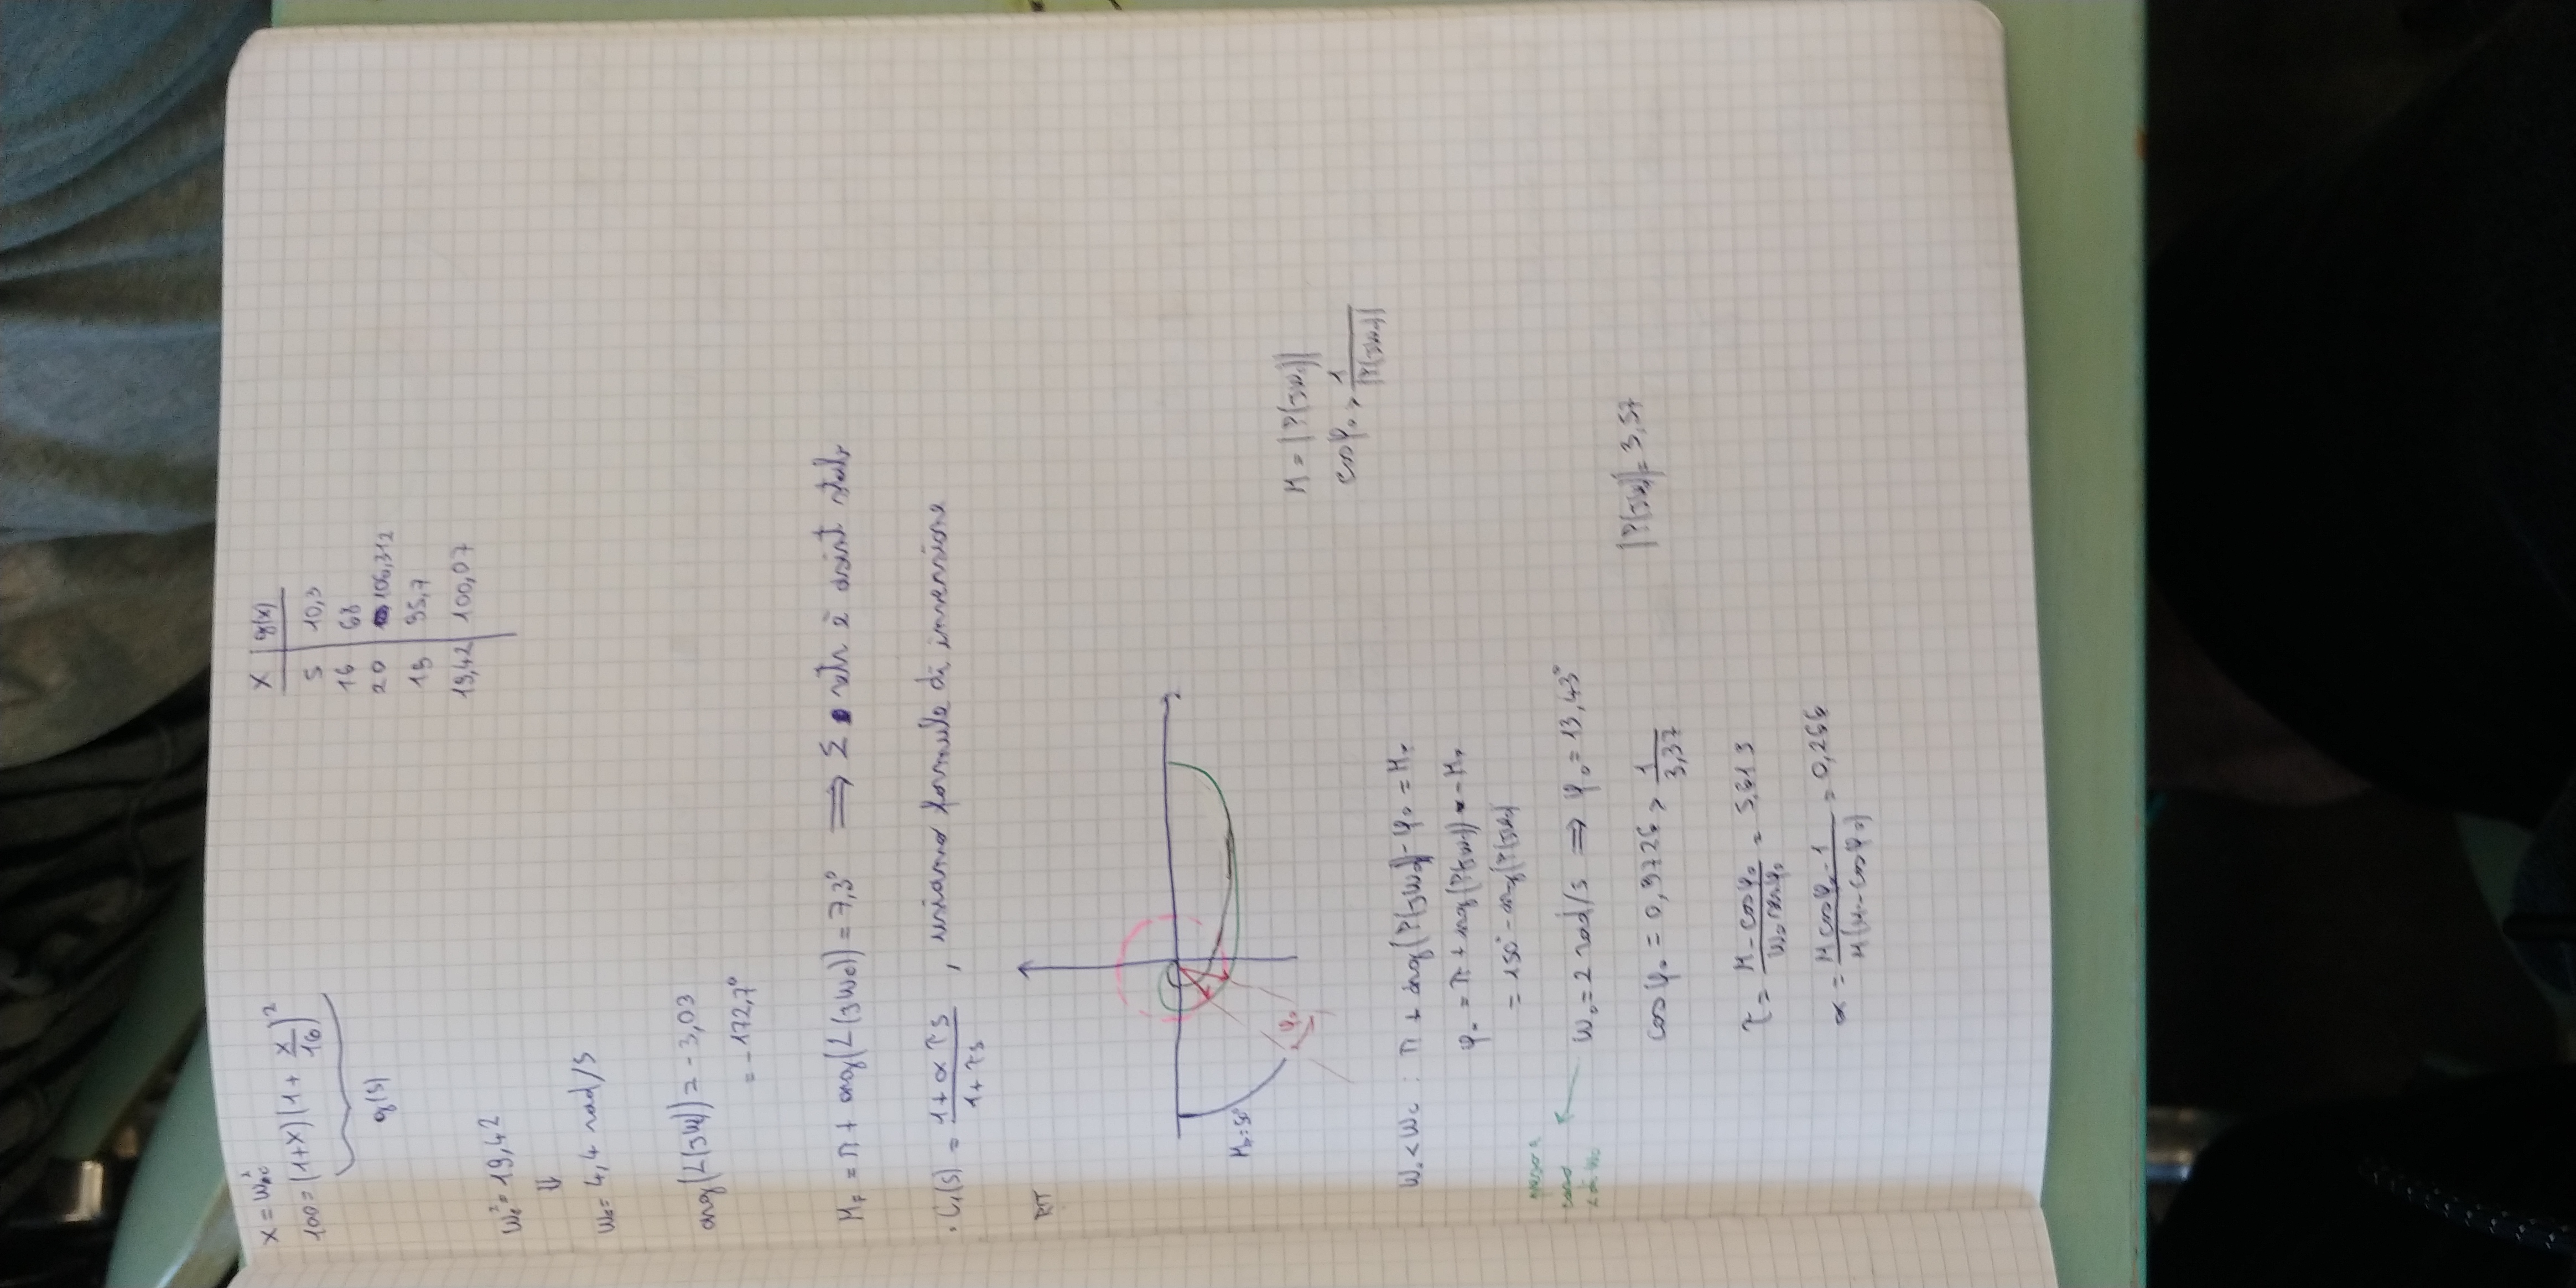 x = ωc²
100 = (1+x)(1 + x/16)²
g(s)
x | g(x)
5 | 10,3
16 | 68
20 | 106,312
19 | 95,7
19,42 | 100,07
ωc² = 19,42
⇓
ωc = 4,4 rad/s
arg(L(jωc)) = -3,03
= -172,7°
MF = π + arg(L(jωc)) = 7,3° ⟹ Σ retr è asint stab
· C1(s) = (1+ατs)/(1+τs) , usiamo formule di inversione
RIT
φ0
M = |P(jω0)|
cosφ0 > 1/|P(jω0)|
ω0 < ωc : π + arg(P(jω0)) - φ0 = MF
φ0 = π + arg(P(jω0)) - MF
= 150° - arg(P(jω0))
ω0 = 2 rad/s ⟹ φ0 = 13,43°
|P(jω0)| = 3,57
cosφ0 = 0,9726 > 1/3,37
τ = (M - cosφ0)/(ω0 senφ0) = 5,613
α = (M cosφ0 - 1)/(M(M - cosφ0)) = 0,266